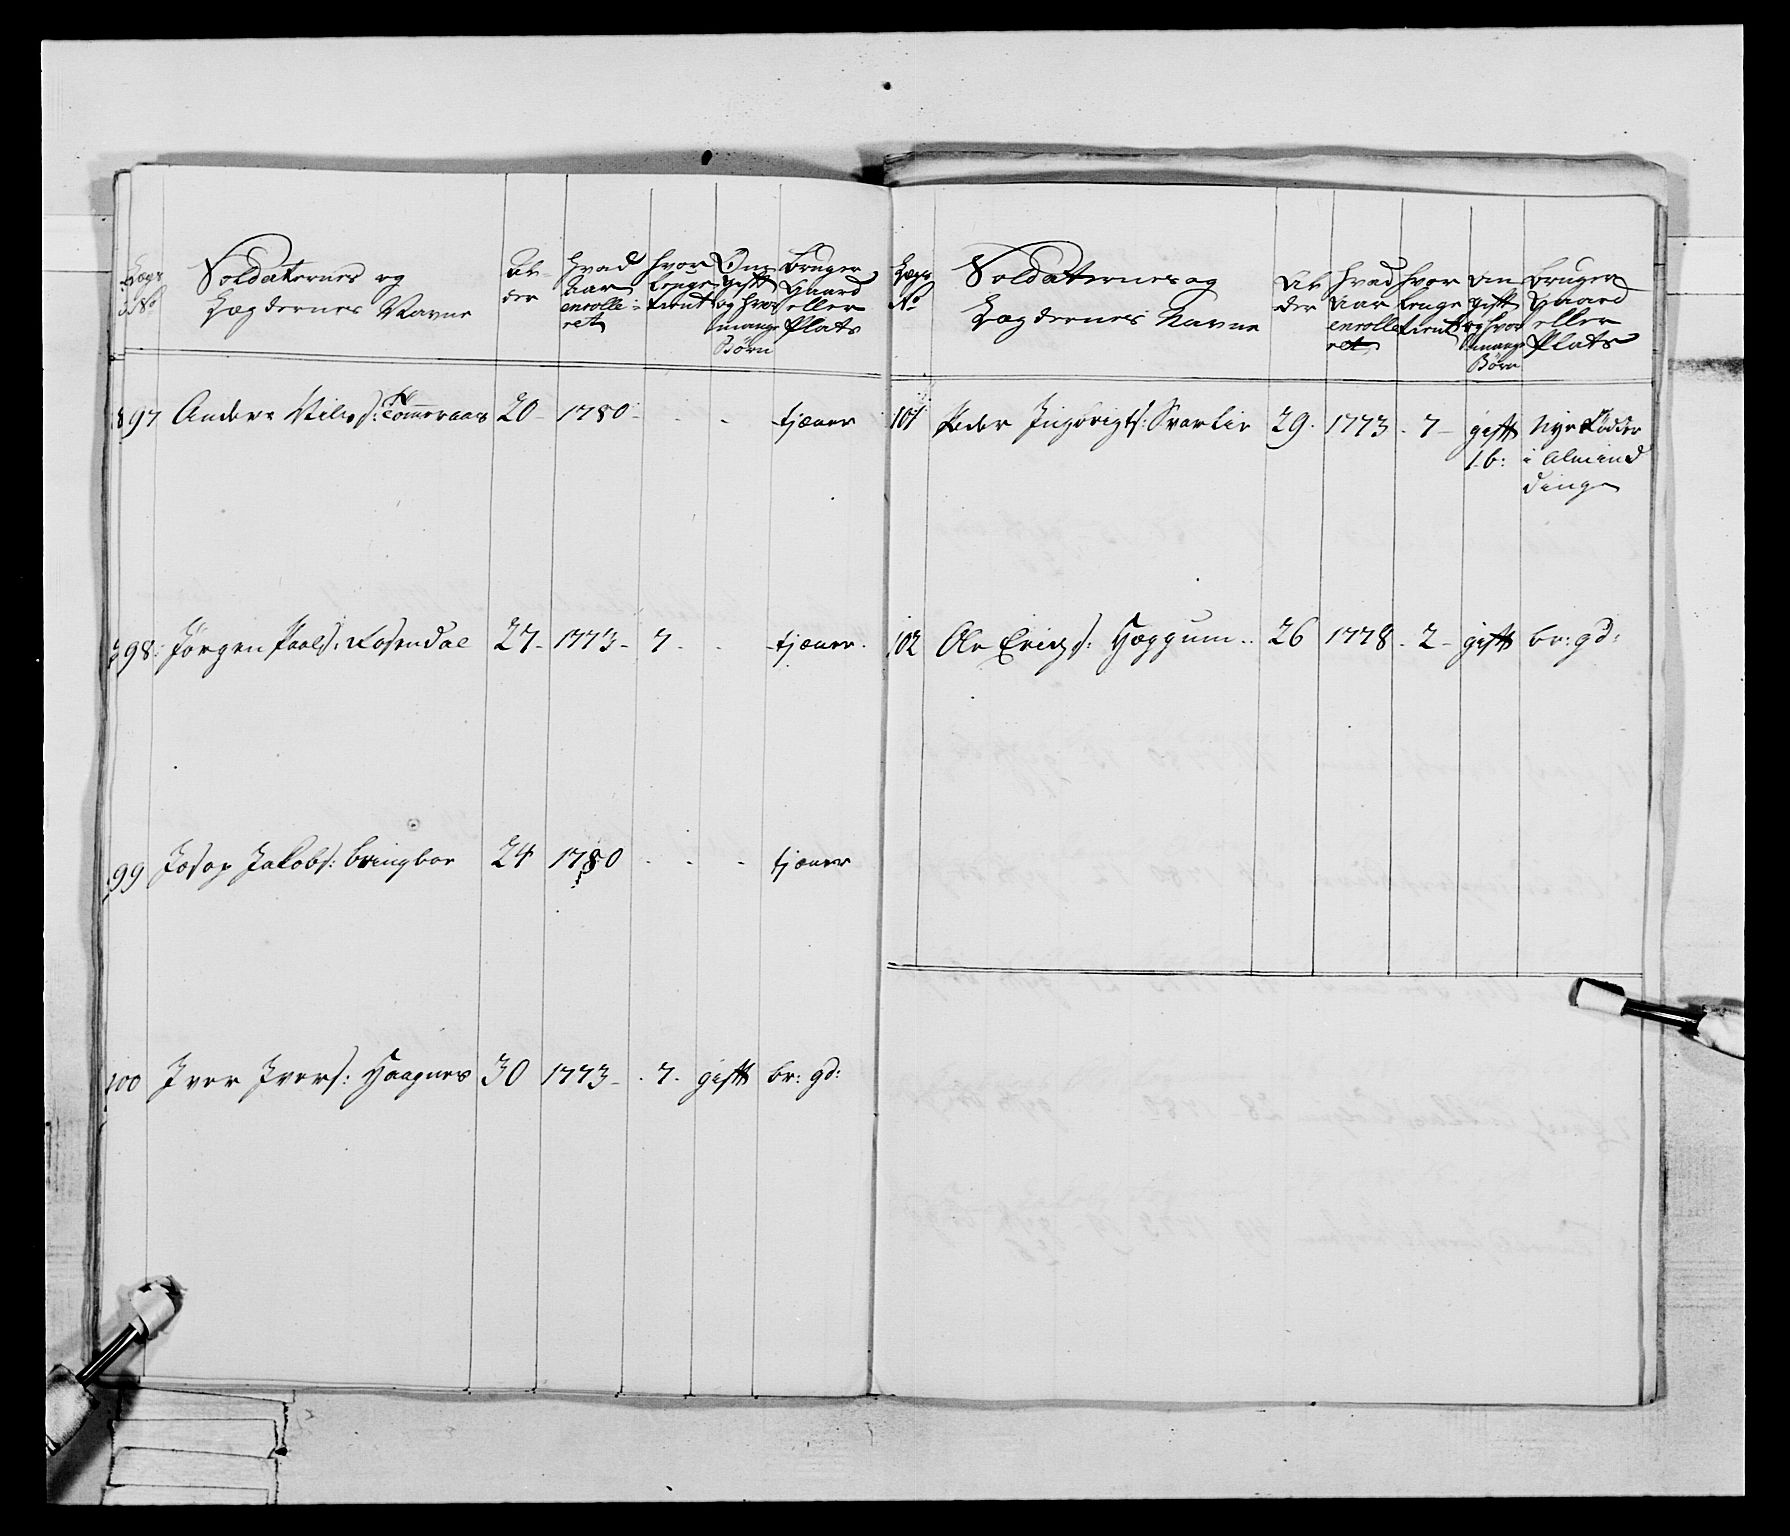 Lægs No
Soldatternes og
Lægdernes Navne
Al-
der
hvad
Aar
enrolle-
ret
hvor
lenge
tient
Om
gift
og hvor
mange
Børn
Bruger
Gaard
eller
Plats
97 Anders Nils: Tommeraas 20 - 1780 - - - tjæner
98 Jørgen Povels: Rosendal 27 - 1773 - 7 - - tjæner
99 Josep Jakobs: Bringboe 24 1780 - - - tjæner
100 Iver Ivers: Haagnes 30 1773 - 7 - gift br: gd:
Lægs No
Soldatternes og
Lægdernes Navne
Al
der
hvad
Aar
enrolle
ret
hvor
lenge
tient
Om
gift
og hvor
mange
Børn
Bruger
Gaard
eller
Plats
101 Peder Ingbrigts: Svartlie 29 - 1773 - 7 - gift Nye Rødder
1 b: i Almind
dinge
102 Ole Erichs: Hoggum 26 1778 - 2 - gift br: gd: